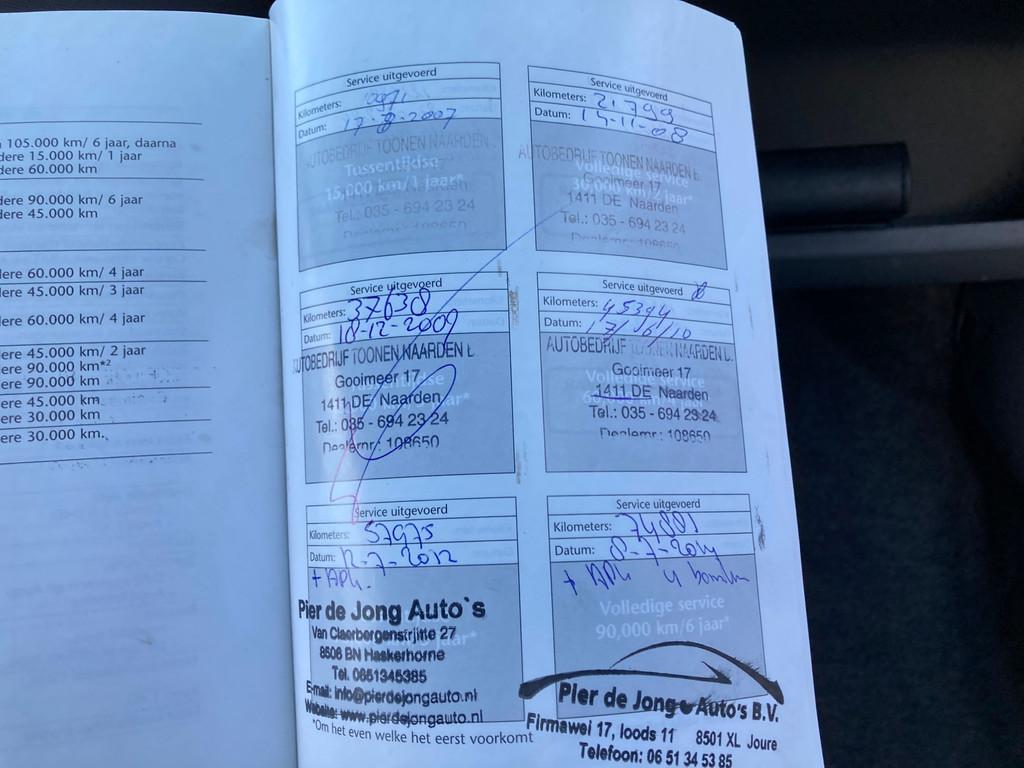 105.000 km/ 6 jaar, daarna
dere 15.000 km/ 1 jaar
dere 60.000 km
dere 90.000 km/ 6 jaar
dere 45.000 km
dere 60.000 km/ 4 jaar
dere 45.000 km/ 3 jaar
dere 60.000 km/ 4 jaar
dere 45.000 km/ 2 jaar
ere 90.000 km*²
ere 90.000 km
ere 45.000 km
ere 30.000 km
ere 30.000 km.
Service uitgevoerd
Kilometers:
Datum: 17-8-2007
AUTOBEDRIJF TOONEN NAARDEN
Tussentijdse
15,000 km/1 jaar*
Tel.: 035 - 694 23 24
Service uitgevoerd
Kilometers: 21.799
Datum: 14-11-08
AUTOBEDRIJF TOONEN NAARDEN
Volledige service
Gooimeer 17
1411 DE Naarden
Tel.: 035 - 694 23 24
Dealernr.: 108650
Service uitgevoerd
Kilometers: 37630
Datum: 18-12-2009
AUTOBEDRIJF TOONEN NAARDEN
Gooimeer 17
1411 DE Naarden
Tel.: 035 - 694 23 24
Dealernr.: 108650
Service uitgevoerd
Kilometers: 45394
Datum: 17/6/10
AUTOBEDRIJF TOONEN NAARDEN
Gooimeer 17
1411 DE Naarden
Tel.: 035 - 694 23 24
Dealernr.: 108650
Service uitgevoerd
Kilometers: 57975
Datum: 12-7-2012
+ APK.
Pier de Jong Auto's
Van Claerbergenstrjitte 27
8506 BN Haskerhorne
Tel. 0651345385
E-mail: info@pierdejongauto.nl
Website: www.pierdejongauto.nl
*Om het even welke het eerst voorkomt
Service uitgevoerd
Kilometers: 74881
Datum: 8-7-2014
+ APK 4 banden
Volledige service
90,000 km/6 jaar*
Pier de Jong Auto's B.V.
Firmawei 17, loods 11 8501 XL Joure
Telefoon: 06 51 34 53 85